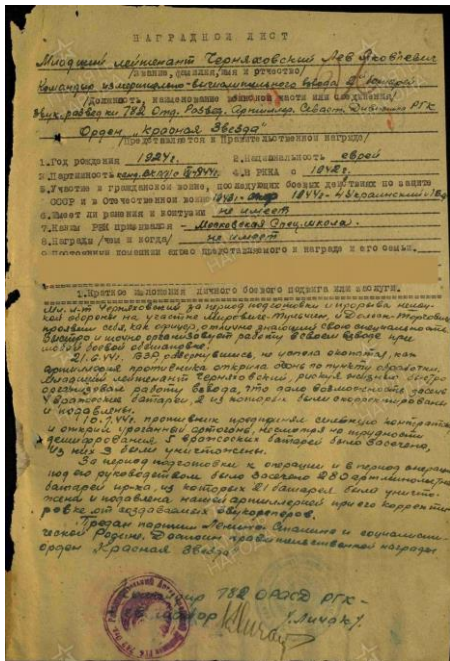 НАГРАДНОЙ ЛИСТ
Младший лейтенант Черняховский Лев Яковлевич
/звание, фамилия, имя и отчество/
Командир измерительно-вычислительного взвода 2й батареи
/Должность, наименование воинской части или соединения/
Звук. разведки 782 Отд. Развед. Артиллер. Севаст. Дивизиона РГК
Орден "Красная Звезда"
/представляется к Правительственной награде/
1. Год рождения 1924 г. 2. Национальность еврей
3. Партийность канд. ВКП(б) 1944 г. 4. В РККА с 1942 г.
5. Участие в гражданской войне, последующих боевых действиях по защите
СССР и в Отечественной войне 1943 г. 1944 г. 4 Украинский
6. Имеет ли ранения и контузии не имеет
7. Каким РВК призывался - Московская Спец. школа.
8. Награды /чем и когда/ не имеет
9. Постоянный домашний адрес представляемого к награде и его семьи.
1. Краткое изложение личного боевого подвига или заслуги.
Мл. л-т Черняховский за период подготовки и прорыва
обороны на участке
проявил себя, как офицер, отлично знающий свою специальность.
Быстро и точно организует работу в своем взводе при
любой боевой обстановке.
21.6.44 г. БЗР развернувшись, не успела окопаться, как
артиллерия противника открыла огонь по пункту обработки.
Младший лейтенант Черняховский, рискуя жизнью быстро
организовал работу взвода, что дало возможность засечь
4 вражеские батареи, 2 из которых были скорректированы
и подавлены.
10.7.44 г. противник предпринял сильную контратаку
и открыл ураганный артогонь, несмотря на трудности
дешифрования 5 вражеских батарей было засечено,
из них 3 были уничтожены.
За период подготовки к операции и в период операции
под его руководством было засечено 283 артминпульт
батарей пр-ка, из которых 21 батарея была уничто-
жена и подавлена нашей артиллерией при его корректи-
ровке от создаваемых звукореперов.
Предан партии Ленина-Сталина и социалисти-
ческой Родине. Достоин правительственной награды
орден Красная Звезда
Командир 782 ОРАСД РГК -
майор /Личак/